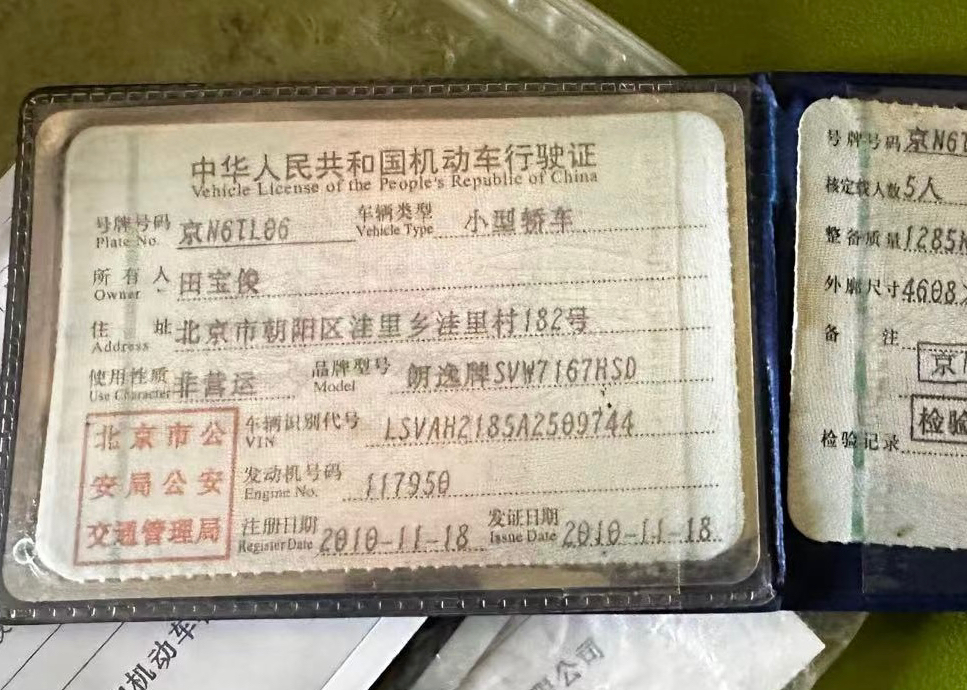 中华人民共和国机动车行驶证
Vehicle License of the People's Republic of China
号牌号码 京N6TL06 车辆类型 小型轿车
Plate No. Vehicle Type
所有人 田宝俊
Owner
住址 北京市朝阳区洼里乡洼里村182号
Address
使用性质 非营运 品牌型号 朗逸牌SVW7167HSD
Use Character Model
北京市公安局公安交通管理局
车辆识别代号 LSVAH2185A2509744
VIN
发动机号码 117950
Engine No.
注册日期 2010-11-18 发证日期 2010-11-18
Register Date Issue Date
号牌号码 京N6T
核定载人数 5人
整备质量 1285k
外廓尺寸 4608
备注
京
检验记录 检验
机动车
公司